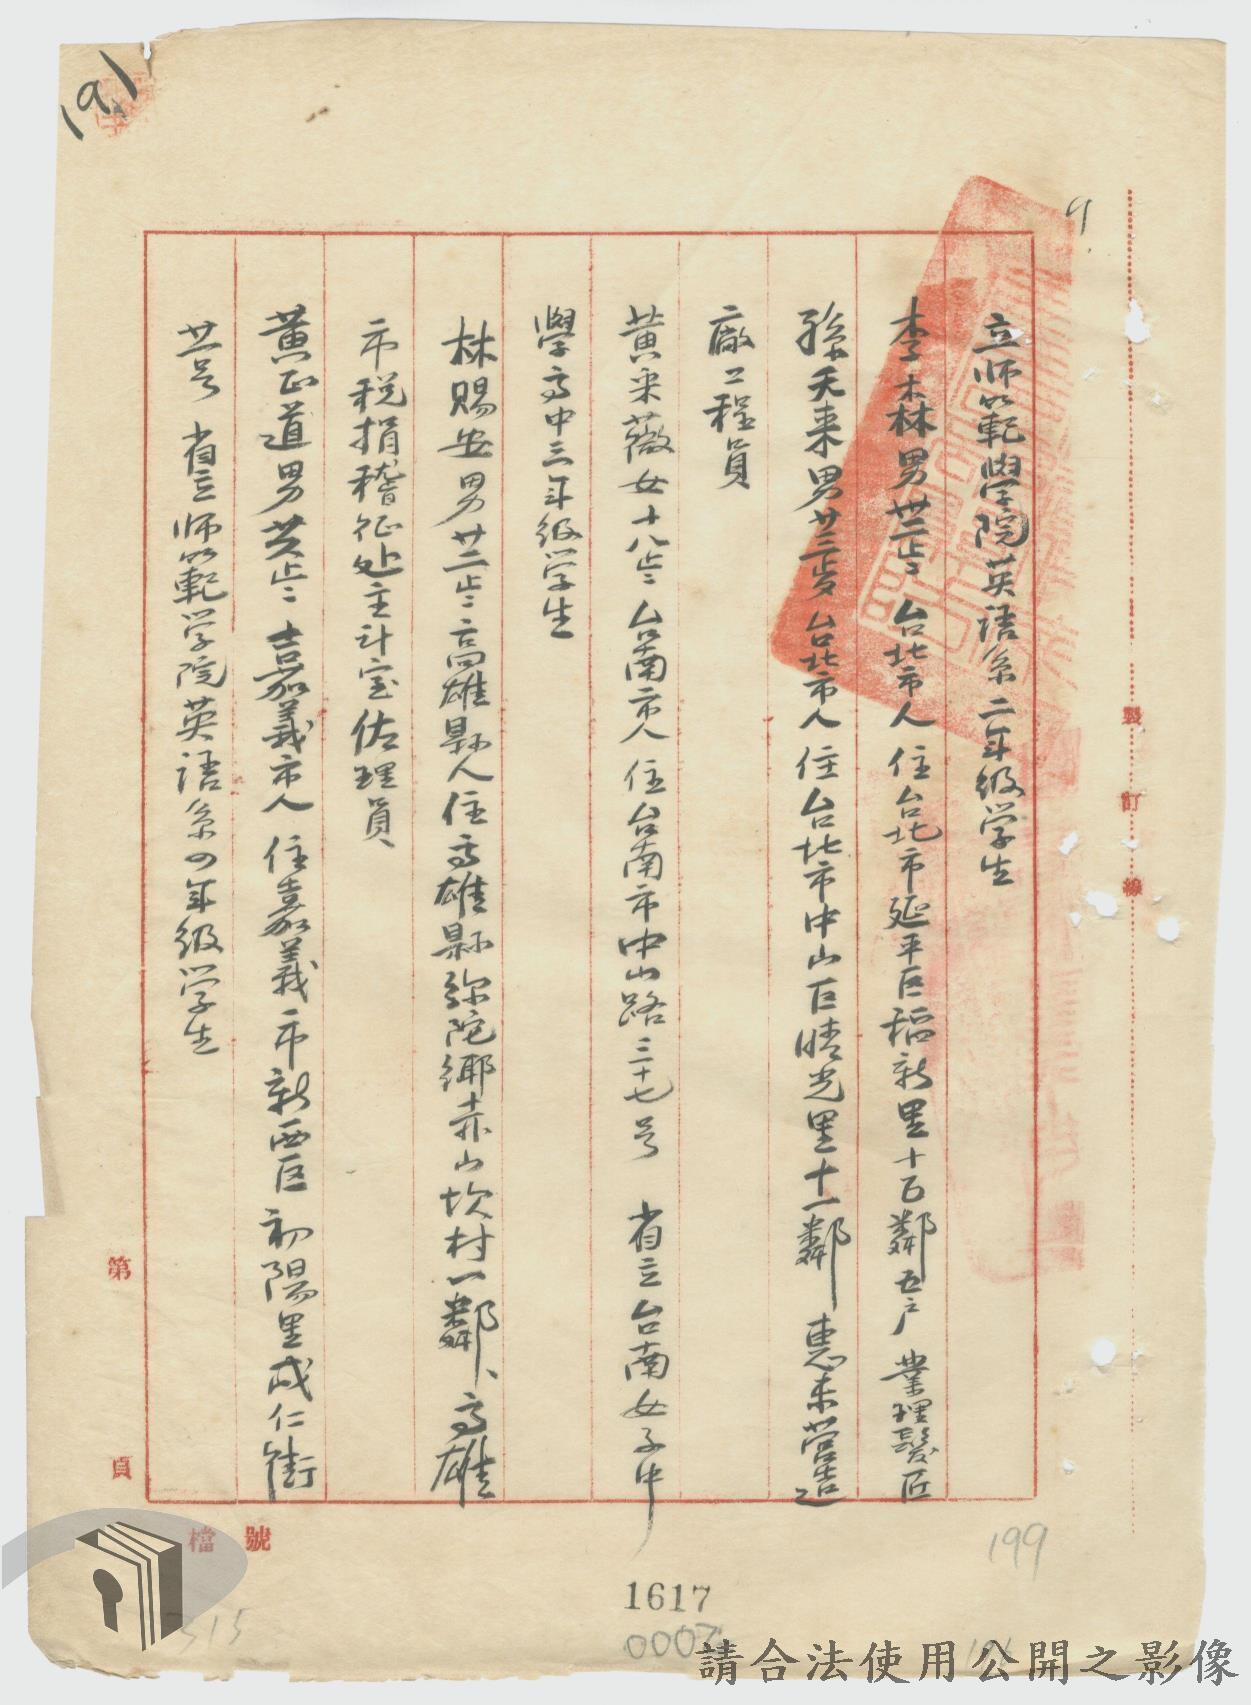 191
立師範學院英語系二年級学生
李木林男卅二歲 台北市人 住台北市延平区稻新里十百鄰五户 業理髮匠
孫天來男廿三岁 台北市人 住台北市中山区晴光里十一鄰 惠東營造
廠工程員
黄采薇女十八歲 台南市人 住台南市中山路三十七号 省立台南女子中
學高中三年級学生
林賜安男廿二歲 高雄縣人 住高雄縣弥陀鄉赤山坎村一鄰、高雄
市稅捐稽征处主计室佐理員
黄正道男廿六歲 嘉義市人 住嘉義市新西区初陽里成仁街
廿一号 省立師範学院英語系四年級学生
裝訂線
第 頁
檔號
199
1617
315
請合法使用公開之影像